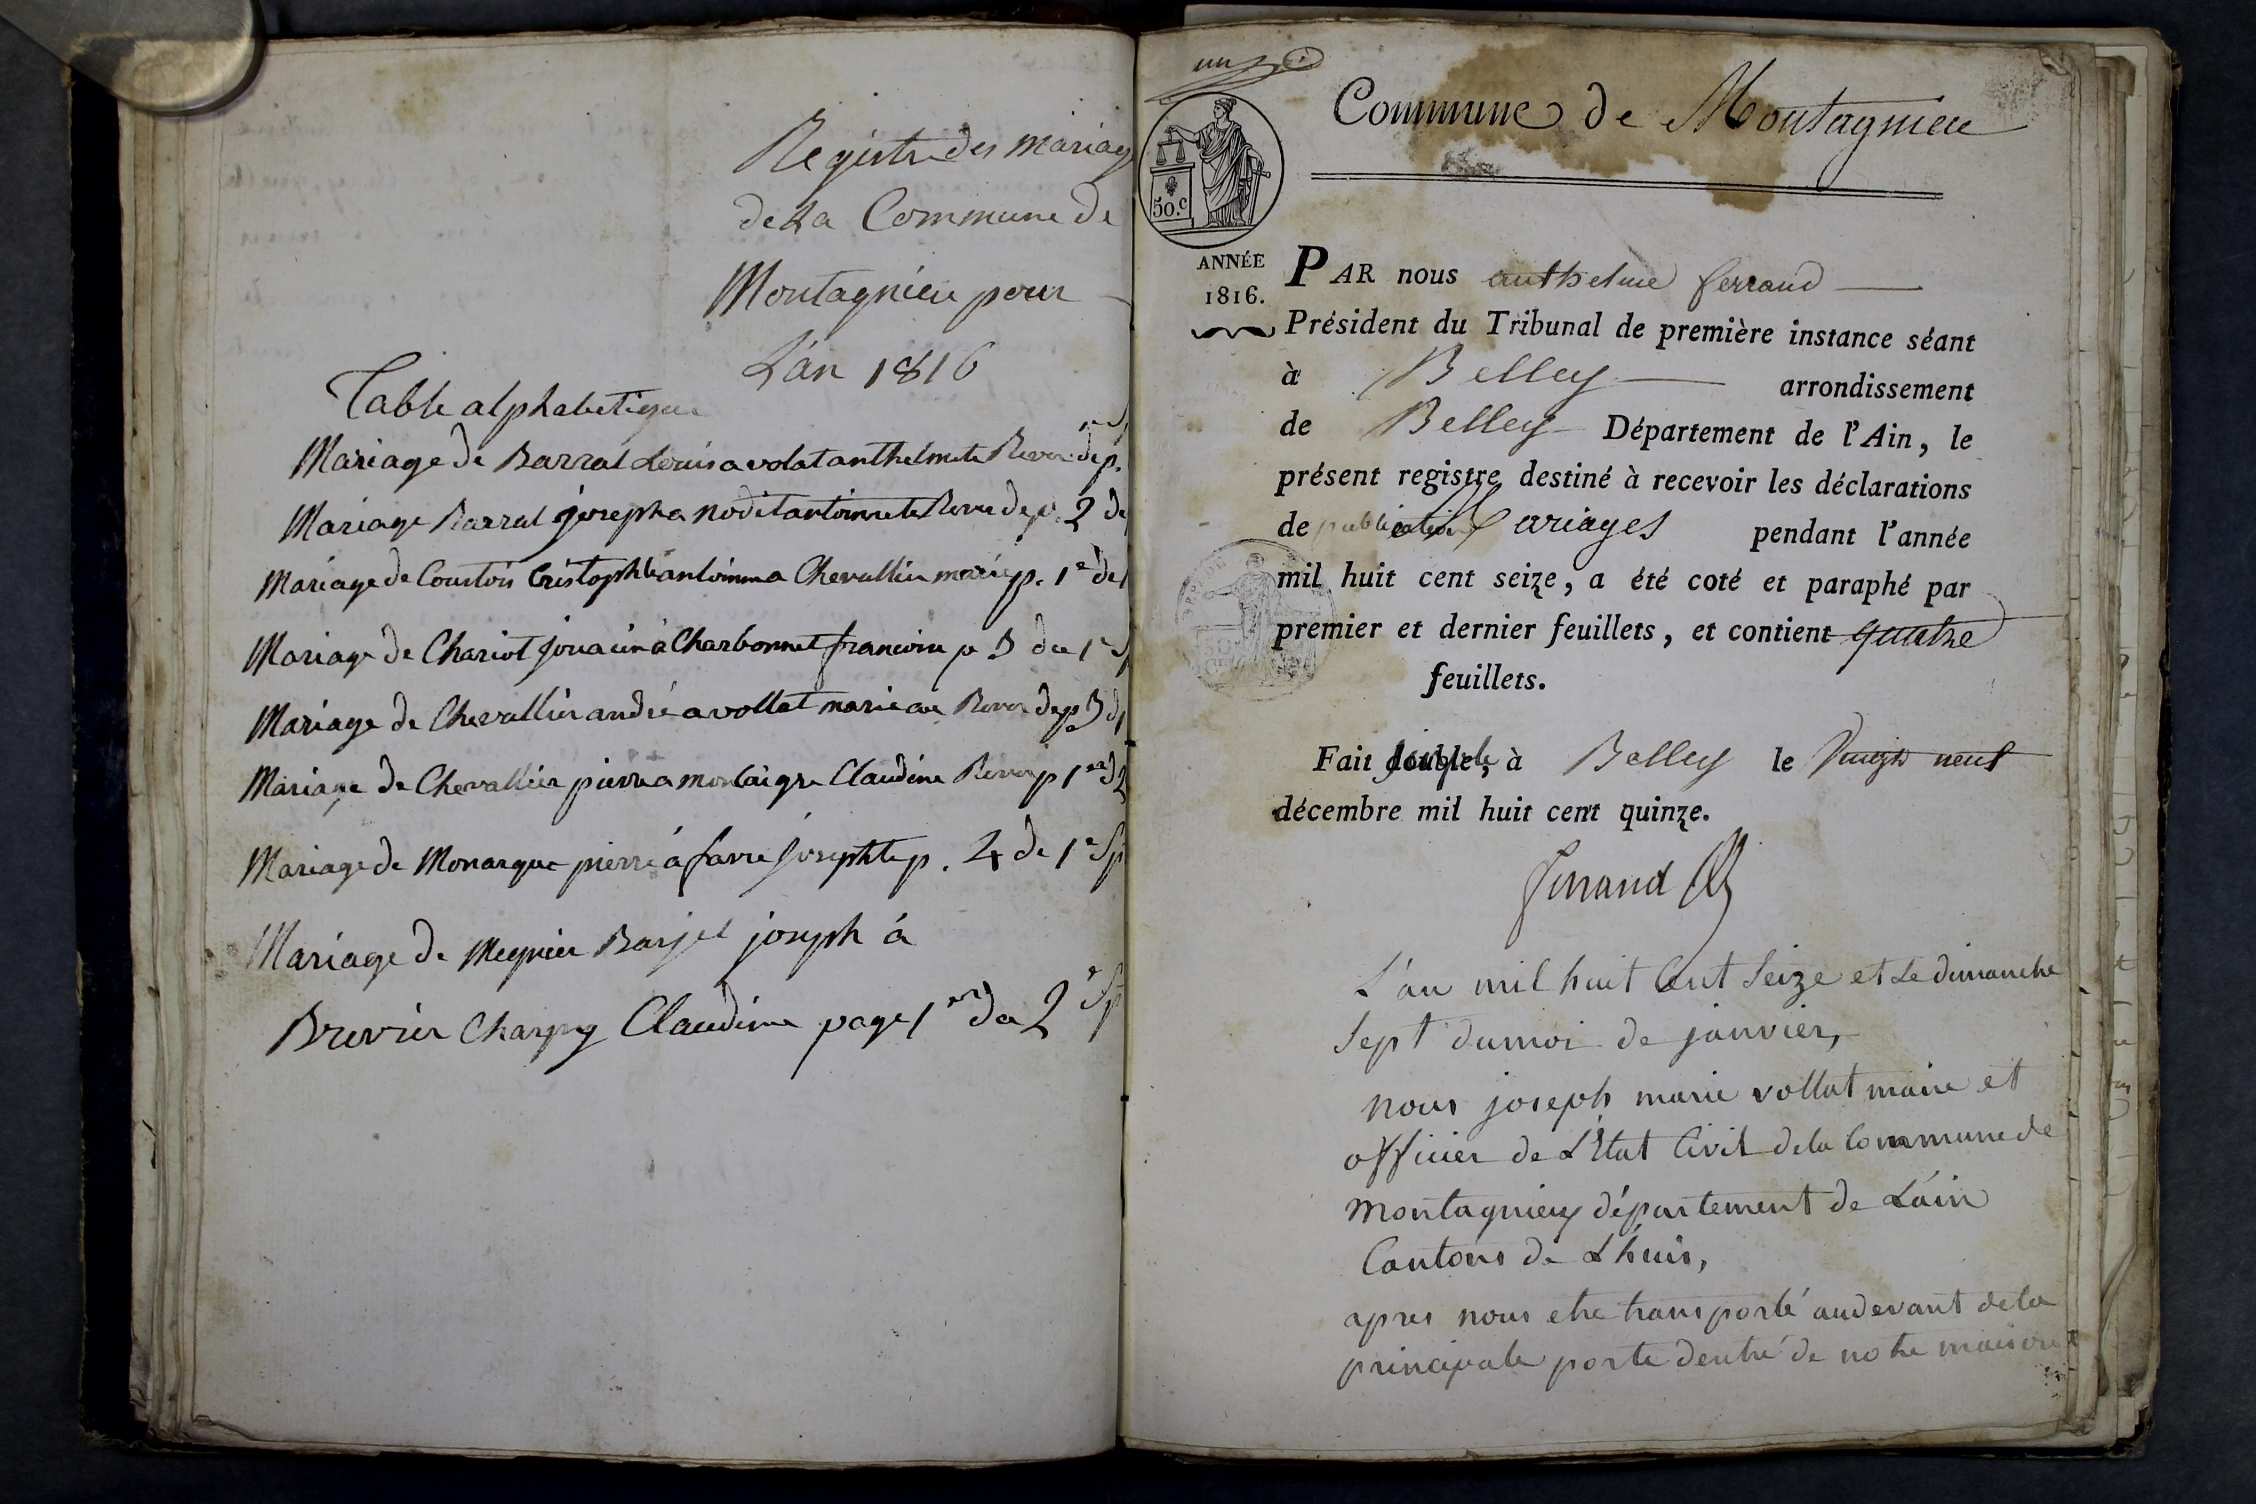 Registre des mariag
de La Commune de
Montagnieu pour
L'an 1816
Table alphabetique
Mariage de Barral Louis a volat anthelmette Rever de p.
Mariage Barral joseph a nodet antoinette Rever de p. 2 de
Mariage de Courtois Cristophle antoinne a Chevallier marie p. 1e de 1
Mariage de Chariot jouacin à Charbonnet francoise p 3 du 1e
Mariage de Chevallier andré a vollat marie au Rever de p 3 d
Mariage de Chevallier pierre a montaigre Claudine Rever p 1er d 2
Mariage de Monarque pierre á favre josephte p. 4 de 1e
Mariage de Meynier Barjet joseph á
Bruvier Charpy Claudine page 1er du 2e
un
Commune de Montagnieu
50.c
ANNÉE
1816.
PAR nous anthelme ferrand
Président du Tribunal de première instance séant
à Belley arrondissement
de Belley Département de l'Ain, le
présent registre destiné à recevoir les déclarations
de publication Mariages pendant l'année
mil huit cent seize, a été coté et paraphé par
premier et dernier feuillets, et contient quatre
feuillets.
Fait double, à Belley le vingt neuf
décembre mil huit cent quinze.
ferrand
L'an mil huit Cent Seize et Le dimanche
Sept du moi de janvier,
nous joseph marie vollat maire et
officier de L'État Civil de la Commune de
montagnieu département de L'ain
Cantons de L'huis,
apres nous etre transporté au devant de la
principale porte dentré de notre maison